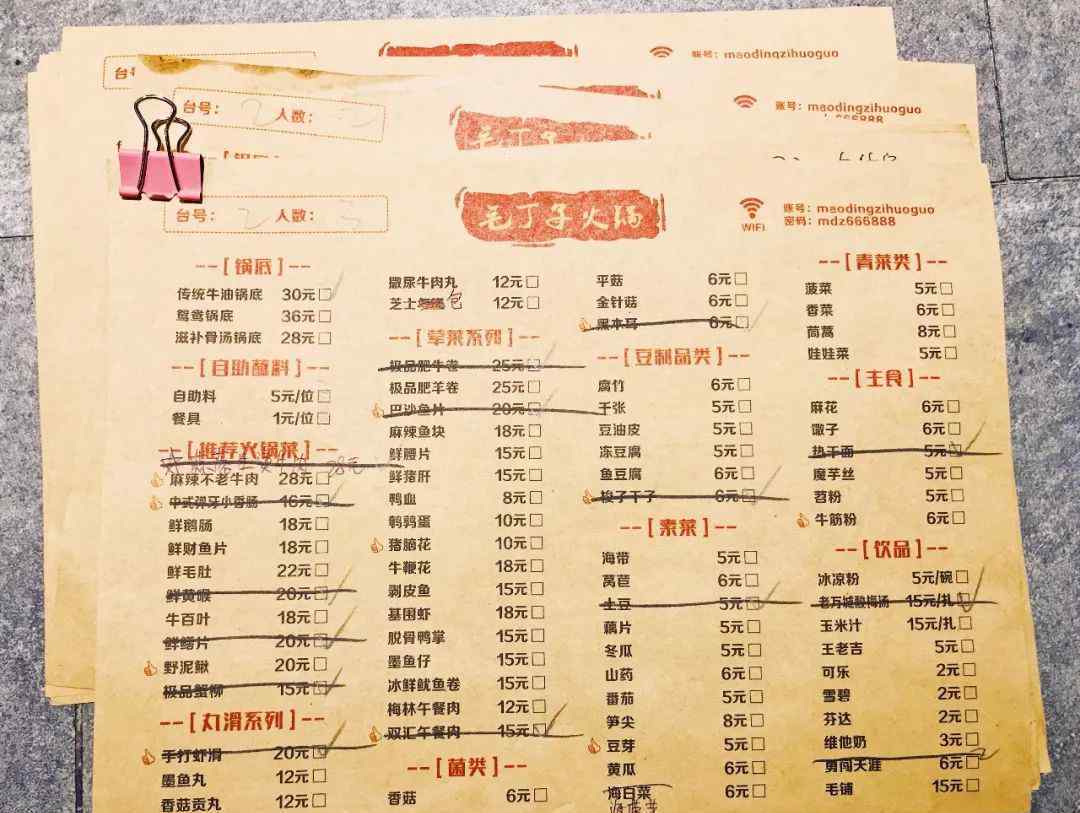 账号：maodingzihuoguo
台号
台号：2 人数：
账号：maodingzihuoguo
毛丁子火锅
台号：2 人数：3
WIFI
账号：maodingzihuoguo
密码：mdz666888
--[ 锅底 ]--
传统牛油锅底 30元
鸳鸯锅底 36元
滋补骨汤锅底 28元
--[ 自助蘸料 ]--
自助料 5元/位
餐具 1元/位
--[ 推荐火锅菜 ]--
28元
麻辣不老牛肉 28元
中式弹牙小香肠 16元
鲜鹅肠 18元
鲜财鱼片 18元
鲜毛肚 22元
鲜黄喉 20元
牛百叶 18元
鲜鳝片 20元
野泥鳅 20元
极品蟹柳 15元
--[ 丸滑系列 ]--
手打虾滑 20元
墨鱼丸 12元
香菇贡丸 12元
撒尿牛肉丸 12元
芝士包 12元
--[ 荤菜系列 ]--
极品肥牛卷 25元
极品肥羊卷 25元
巴沙鱼片 20元
麻辣鱼块 18元
鲜腰片 15元
鲜猪肝 15元
鸭血 8元
鹌鹑蛋 10元
猪脑花 10元
牛鞭花 18元
剥皮鱼 15元
基围虾 18元
脱骨鸭掌 15元
墨鱼仔 15元
冰鲜鱿鱼卷 15元
梅林午餐肉 12元
双汇午餐肉 15元
--[ 菌类 ]--
香菇 6元
平菇 6元
金针菇 6元
黑木耳 6元
--[ 豆制品类 ]--
腐竹 6元
千张 5元
豆油皮 5元
冻豆腐 5元
鱼豆腐 6元
梭子干子 6元
--[ 素菜 ]--
海带 5元
莴苣 6元
土豆 5元
藕片 5元
冬瓜 5元
山药 6元
番茄 5元
笋尖 8元
豆芽 5元
黄瓜 6元
海白菜 6元
--[ 青菜类 ]--
菠菜 5元
香菜 6元
茼蒿 8元
娃娃菜 5元
--[ 主食 ]--
麻花 6元
馓子 6元
热干面 5元
魔芋丝 5元
苕粉 5元
牛筋粉 6元
--[ 饮品 ]--
冰凉粉 5元/碗
老万城酸梅汤 15元/扎
玉米汁 15元/扎
王老吉 5元
可乐 2元
雪碧 2元
芬达 2元
维他奶 3元
勇闯天涯 6元
毛铺 15元